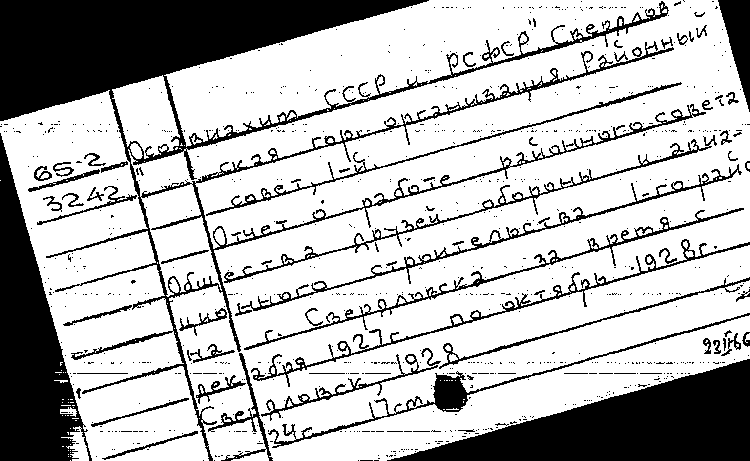 Осоавиахим СССР и РСФСР" Свердлов-
65-2
ская гор. организация. Районный
3242
совет, 1-й.
Отчет о работе районного совета
Общества друзей обороны и авиа-
ционного строительства 1-го райо
на г. Свердловска за время с
декабря 1927г. по октябрь 1928г.
Свердловск, 1928
24с. 17см.